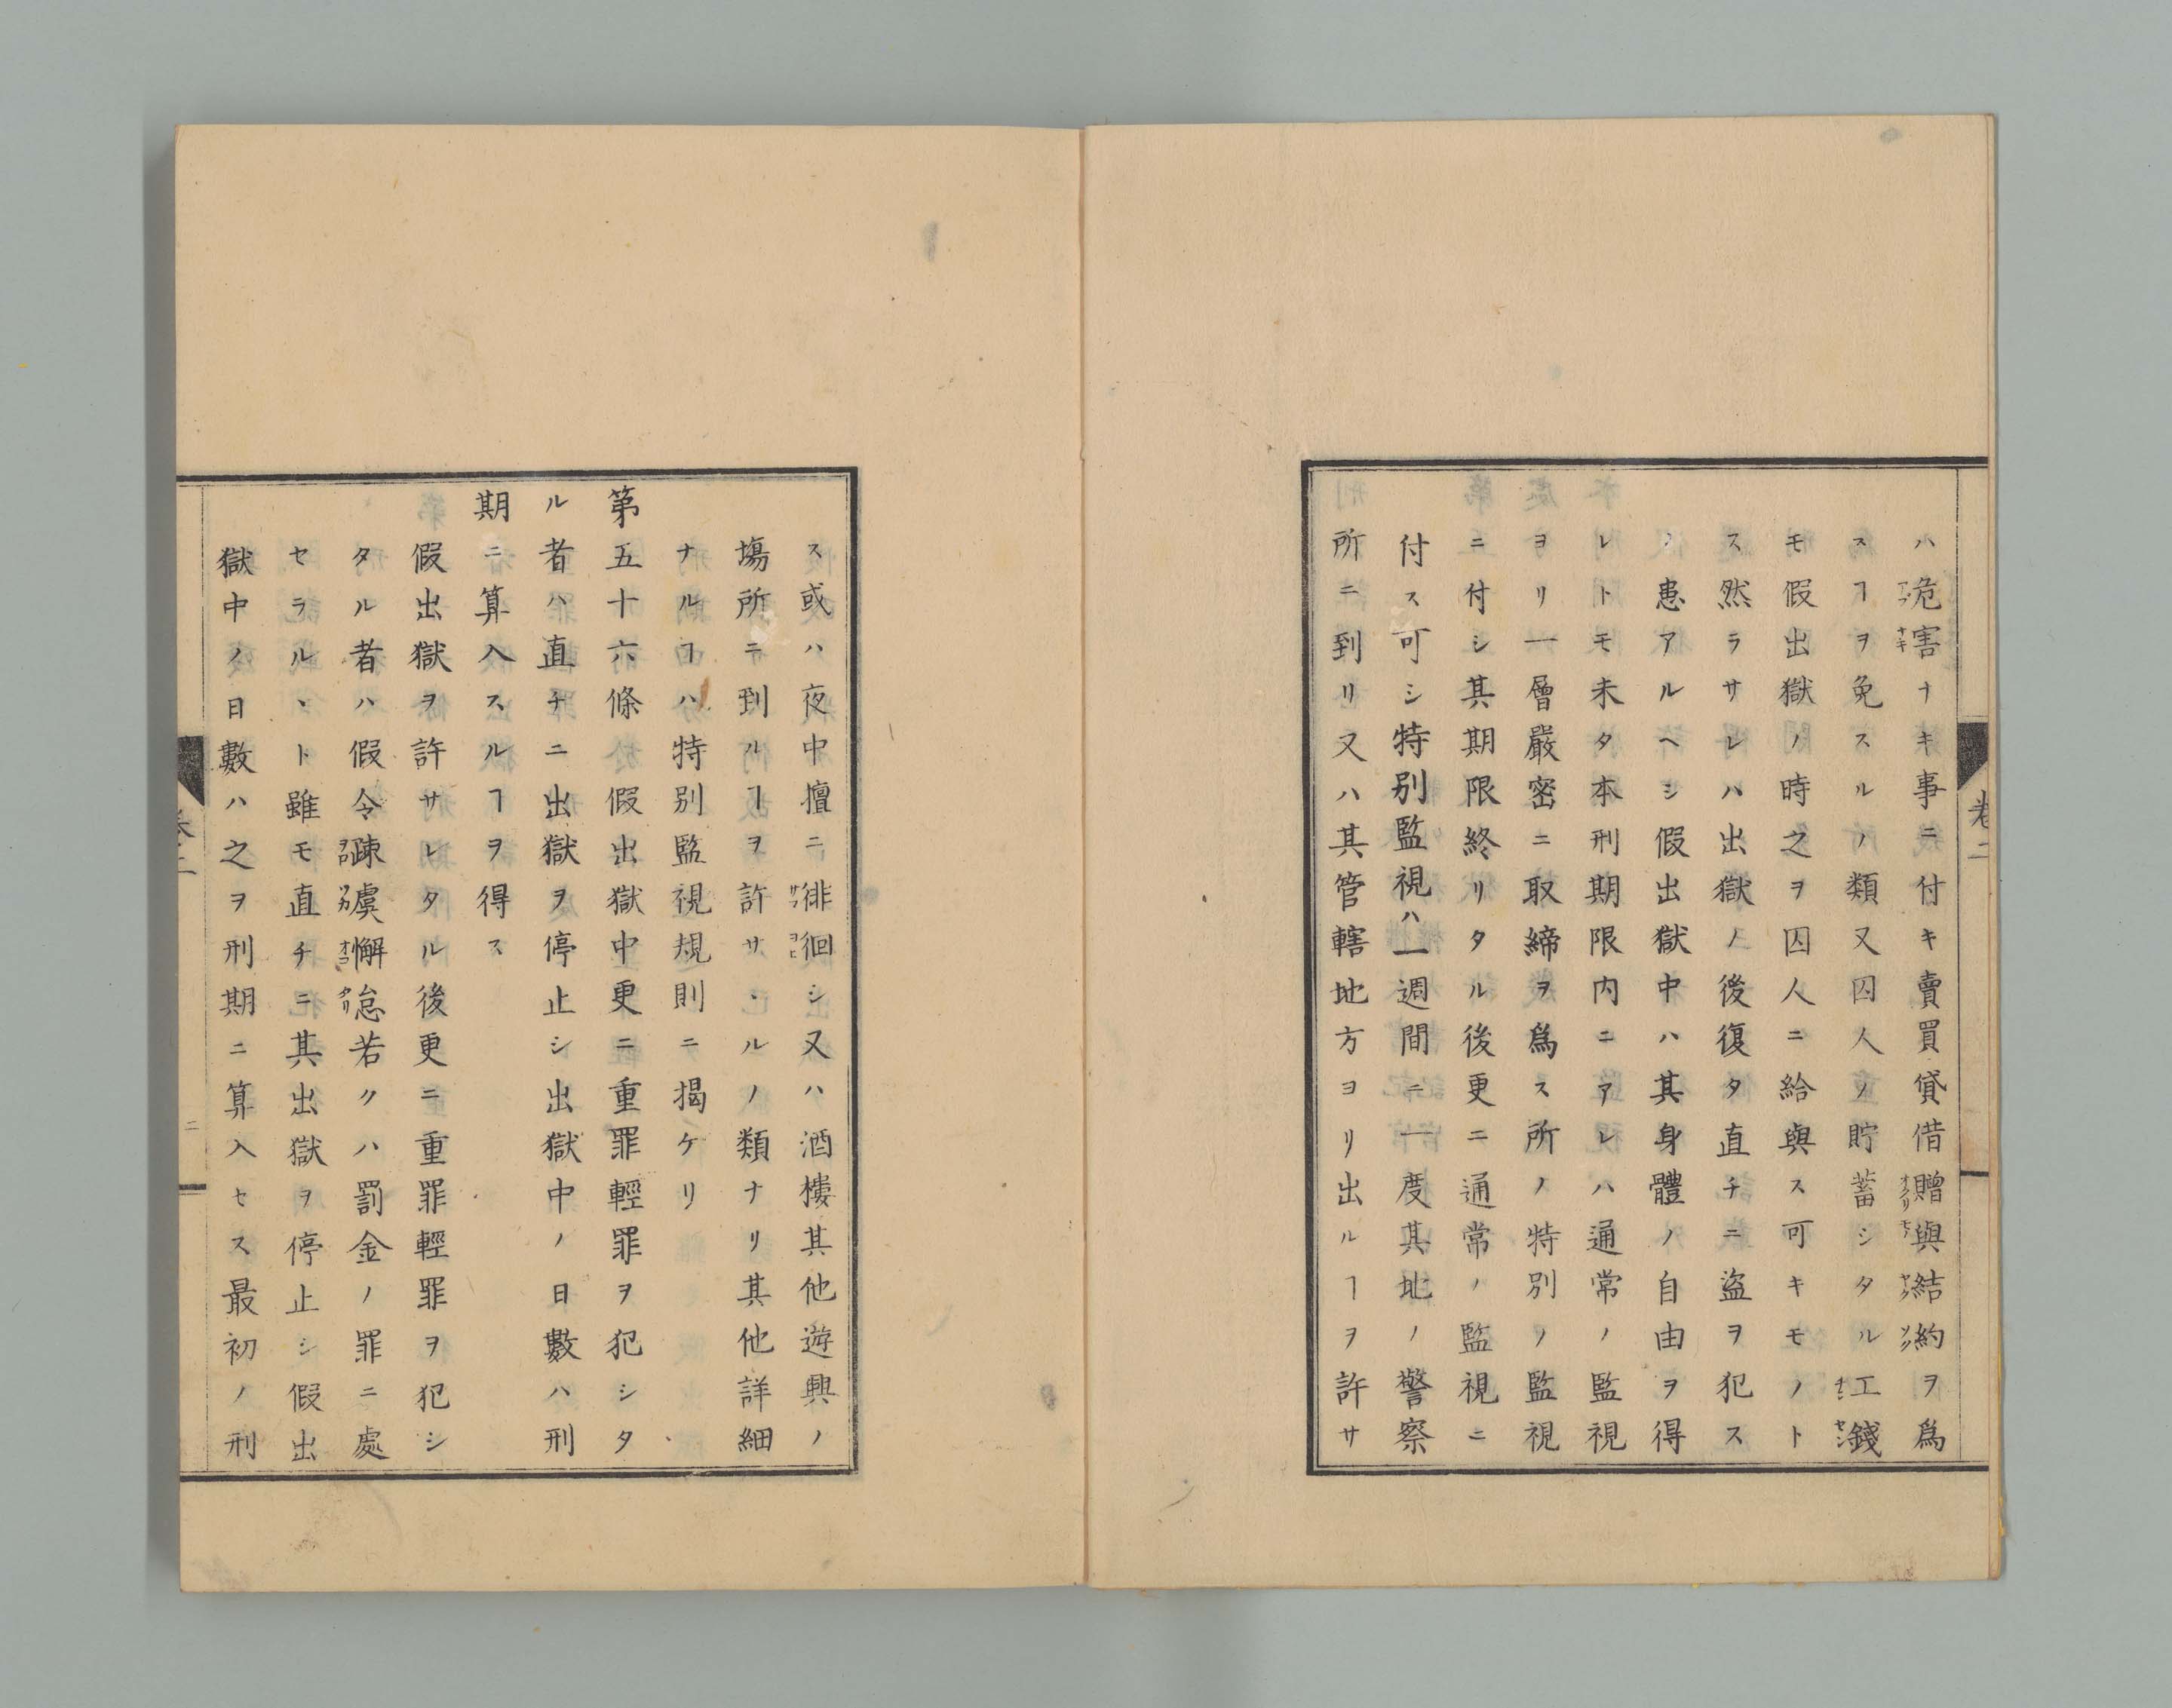 ハ危害ナキ事ニ付キ賣買貸借贈與結約ヲ爲
スヿヲ免スルノ類又囚人ノ貯蓄シタル工錢
モ假出獄ノ時之ヲ囚人ニ給與ス可キモノト
ス然ラサレハ出獄ノ後復タ直チニ盗ヲ犯ス
ノ患アルヘシ假出獄中ハ其身體ノ自由ヲ得
レトモ未タ本刑期限内ニアレハ通常ノ監視
ヨリ一層嚴密ニ取締ヲ爲ス所ノ特別ノ監視
ニ付シ其期限終リタル後更ニ通常ノ監視ニ
付ス可シ特別監視ハ一週間ニ一度其地ノ警察
所ニ到リ又ハ其管轄地方ヨリ出ルヿヲ許サ
卷二
ス或ハ夜中擅ニ徘徊シ又ハ酒樓其他遊興ノ
塲所ニ到ルヿヲ許サヽルノ類ナリ其他詳細
ナルヿハ特別監視規則ニ揭ケリ
第五十六條假出獄中更ニ重罪輕罪ヲ犯シタ
ル者ハ直チニ出獄ヲ停止シ出獄中ノ日數ハ刑
期ニ算入スルヿヲ得ス
假出獄ヲ許サレタル後更ニ重罪輕罪ヲ犯シ
タル者ハ假令疎虞懈怠若クハ罰金ノ罪ニ處
セラルヽト雖モ直チニ其出獄ヲ停止シ假出
獄中ノ日數ハ之ヲ刑期ニ算入セス最初ノ刑
卷二
二